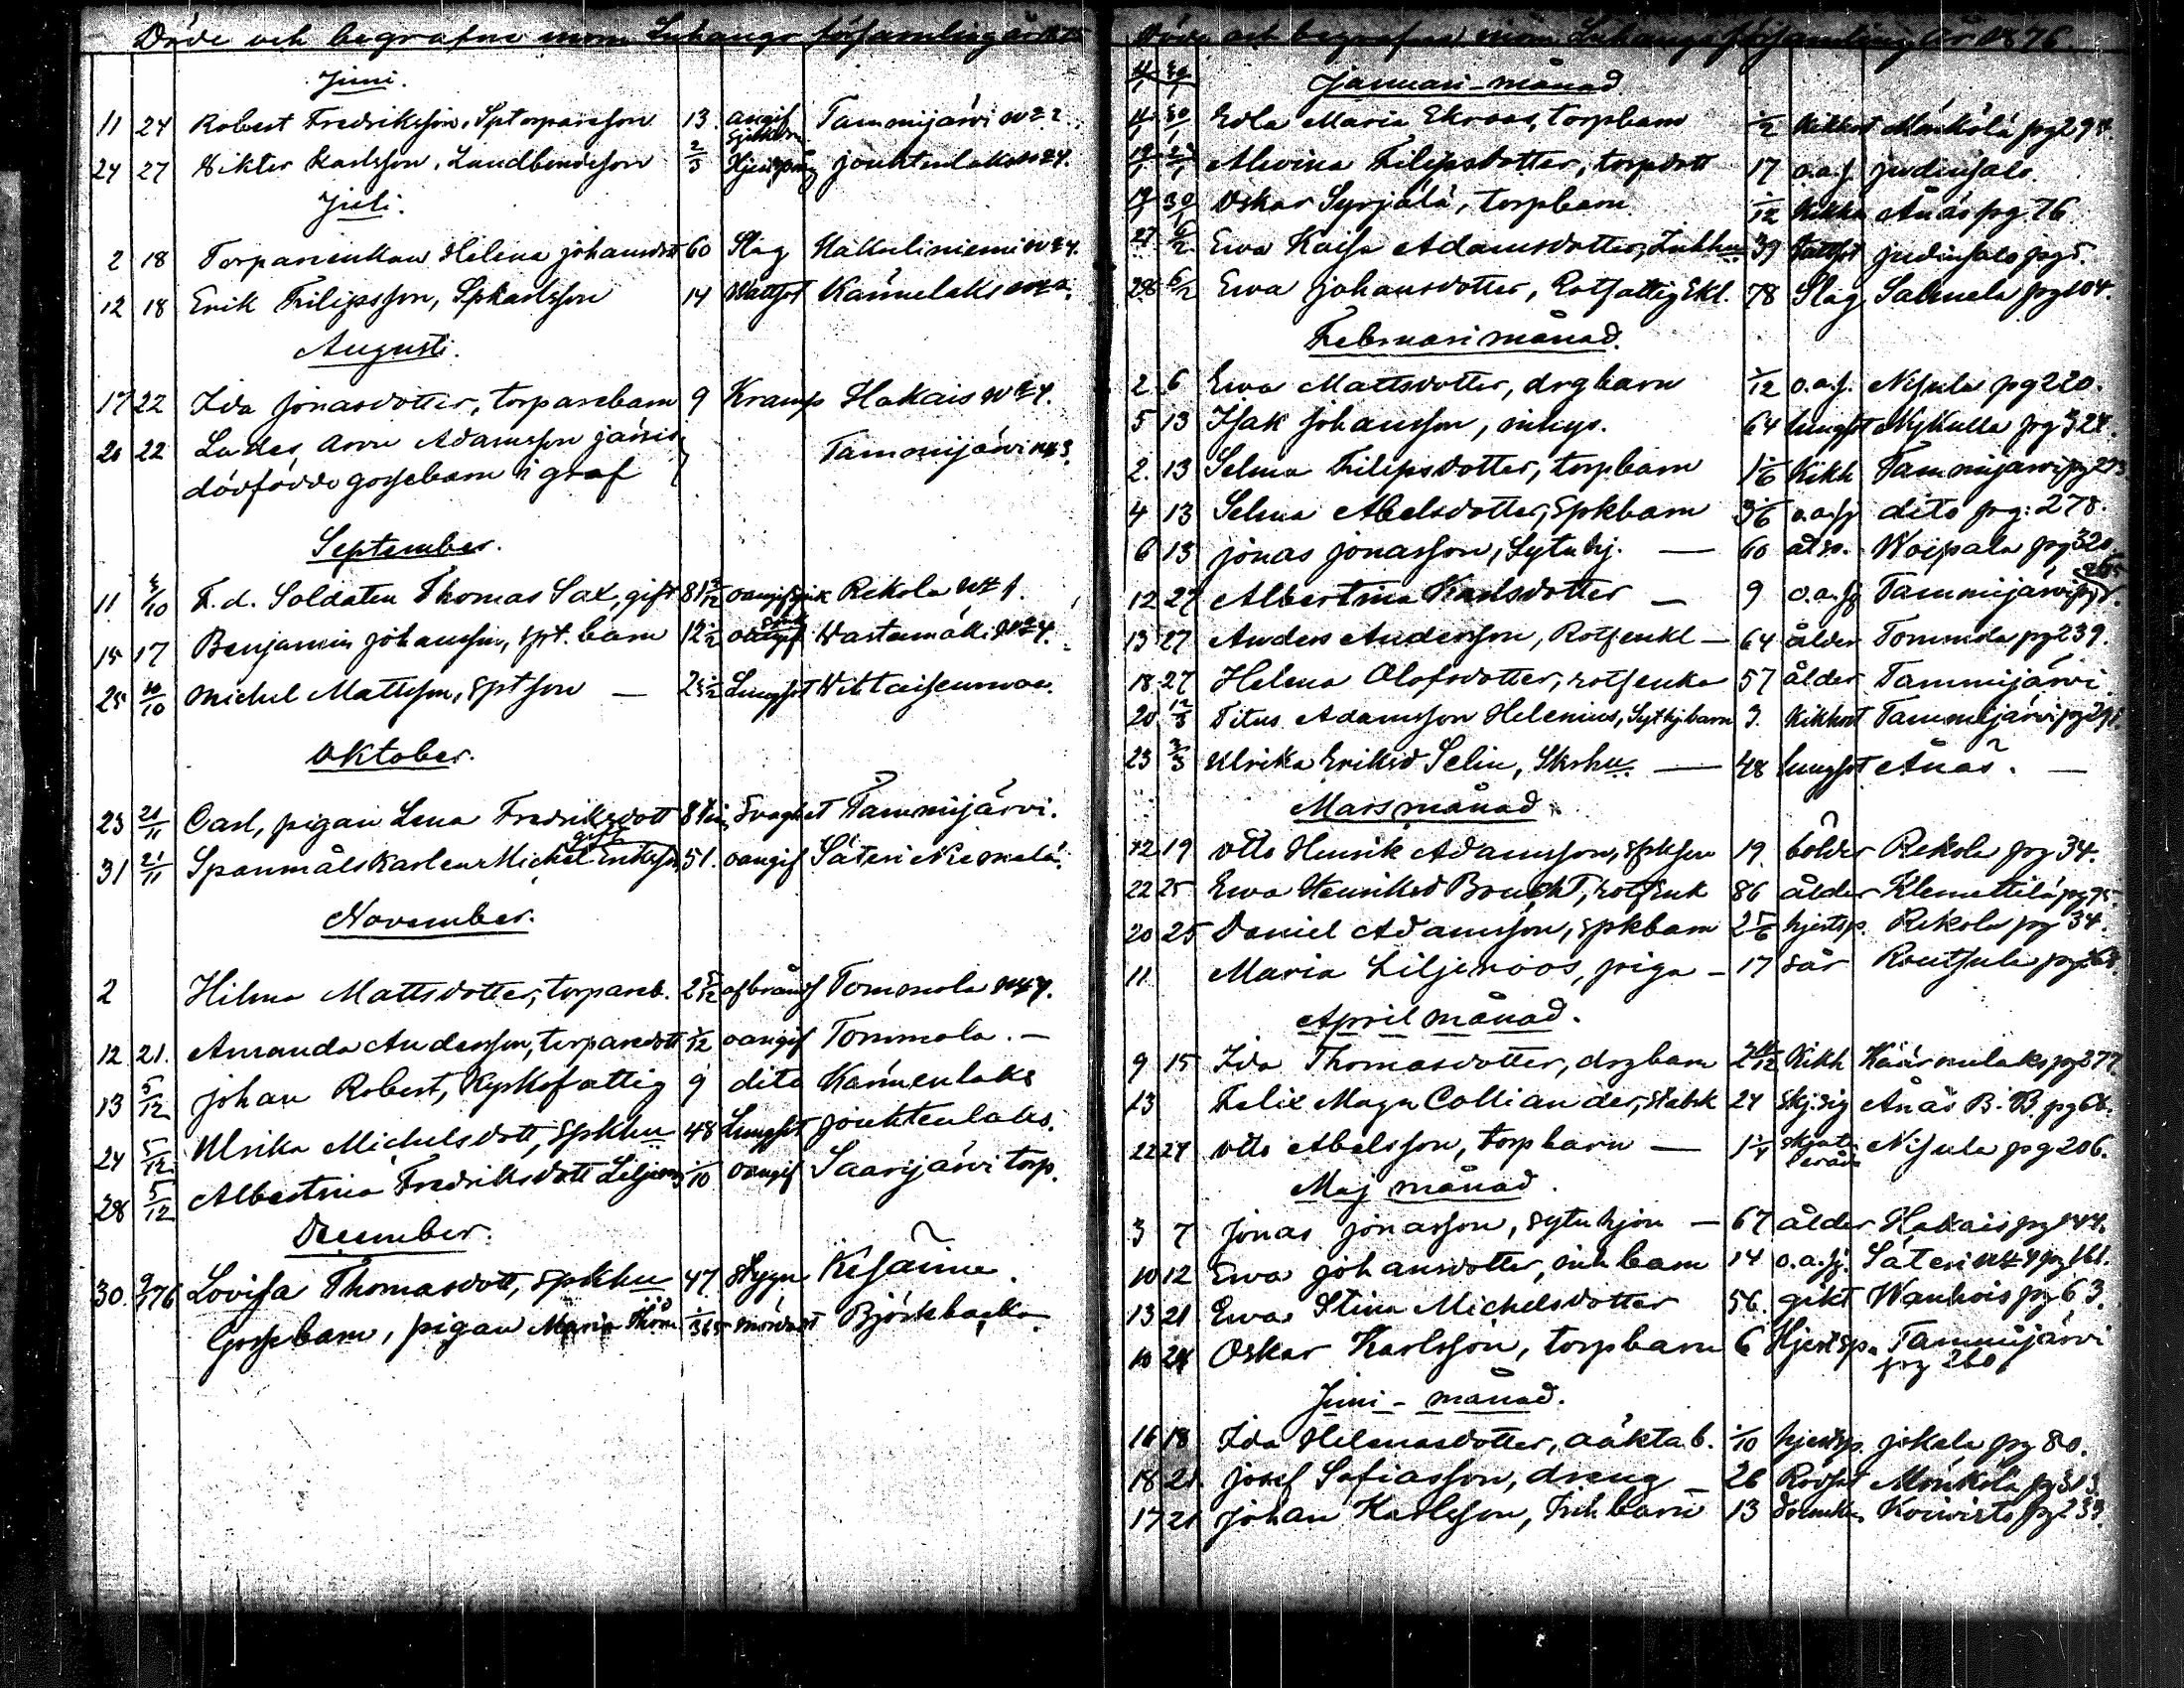 Döde och begrafne inom Luhango församling år 1875
Juni.
11 24 Robert Fredriksson, Sptorpareson 13. angif Tammijärvi No 2.
sjukdom
24 27 Wikter Karlsson, Landbondeson 2/3 Hjertsprång Jouhtenlaks No 4.
Juli.
2 18 Torpareenkan Helena Johansdott 60 Slag Hakuliniemi No 4.
12 18 Erik Filipsson, Spkarlsson 14 Wattsot Kärmelaks No 2.
Augusti.
17 22 Ida Jonasdotter, torparebarn 9 Kramp Hakais No 4.
20 22 Ludes, Adamsson Tammijärvi No 3.
dödfödde gossebarn i graf
September.
11 3/10 F. d. Soldaten Thomas Sax, gift 81 Rekola No 1.
15 17 Benjamin Johansson, spt. barn 12 oangif Wastamäki No 4.
25 10/10 Michel Mattsson, sptson — Lungsot
Oktober.
23 21/11 Carl, pigan Lena Fredriksdott Svaghet Tammijärvi.
gift
31 21/11 Spanmålskarlen Michel 51. oangif Säteri Niemelä.
November.
2 Hilma Mattsdotter, torpareb. 2 5/12 afbränd Tommola No 4.
12 21. Amanda Andersson, torparedott 1/12 oangif Tommola. —
13 5/12 Johan Robert, Kyrkofattig 9 dito Kärmenlaks
24 5/12 Ulrika Michelsdott, spkhu 48 Lungsot Jouhtenlaks.
28 5/12 Albertina Fredriksdott Liljeroos 1/10 oangif Saarijärvi torp.
December.
30. 9/1 76 Lovisa Thomasdott, spkhu 47 Stygn Kesänne.
Gossebarn, pigan Maria Thom 1/365 mördadt Björkbacka
Döde och begrafne inom Luhango församling år 1876.
Januari-månad
11/1 30/1 Edla Maria Ekroos, torpbarn 1/12 Kikhost Mönkölä pg 294.
Alwina Filipsdotter, torpdott 17 o.a.s. Judinsalo.
19/1 30/1 Oskar Syrjälä, torpbarn 1/12 Kikh Änäs pg 76
27 6/2 Ewa Kaisa Adamsdotter, 39 Judinsalo pg 5.
28 6/2 Ewa Johansdotter, Rotfattig Ekl. 78 Slag. Salmela pg 104.
Februari månad.
2 6 Ewa Mattsdotter, drgbarn 1/12 o.a.s. Nisula pg 220.
5 13 Isak Johansson, inhys. 64 lungsot Nykulla pg 324.
2. 13 Selma Filipsdotter, torpbarn 1 Kikh Tammijärvi pg 273
4 13 Selma Abelsdotter, Spkbarn o.a.s dito pg: 278.
6 13 Jonas Jonasson, Sytnhj. — 60 Koipala pg 320
12 27 Albertina Karlsdotter — 9 o.a.sj Tammijärvi pg
13 27 Anders Andersson, Rotsenkl — 64 ålder Tommola pg 239.
18 27 Helena Olofsdotter, rotsenka 57 ålder Tammijärvi
20 12/3 Titus Adamsson Helenius, Sythjbarn 3. Kikhost Tammijärvi pg 291.
23 3/3 Ulrika Eriksd Selin, Skrhu. — 48 lungsot Änäs. —
Mars månad.
12 19 Otto Henrik Adamsson, spkson 19. bölder Rekola pg 34.
22 25 Ewa Henriksd Brucht, rotsenk 86 ålder Klemettilä pg 95.
20 25 Daniel Adamsson, spkbarn 2 5/6 hjertsp. Rekola pg 34.
11 Maria Liljeroos, piga — 17 sår Routsula pg 268.
April månad.
9 15 Ida Thomasdotter, drgbarn Kikh Käärmelaks pg 277.
23 Felix Magn Colliander, stabsk 24 Änäs B. B. pg 68.
22 24 Otto Abelsson, torpbarn — 1 1/4 Nisula pg 206.
Maj månad.
3 7 Jonas Jonasson, sytnhjon — 67 ålder Hakais pg 144.
10 12 Ewa Johansdotter, inhbarn 14 o.a.sj. Säteri No 4 pg 161.
13 21 Ewa Stina Michelsdotter 56. gikt Wanhois pg 63.
10 24 Oskar Karlsson, torpbarn 6 Hjertsp. Tammijärvi
pg 260
Juni - månad.
16 18 Ida Helenasdotter, oäkta b. 1/10 hjertsp. Jokela pg 80.
18 21 Josef Sofiasson, dreng 26 Rödsot Mönkölä pg 313.
17 21 Johan Karlsson, Inhbarn 13 Koivisto pg 233.